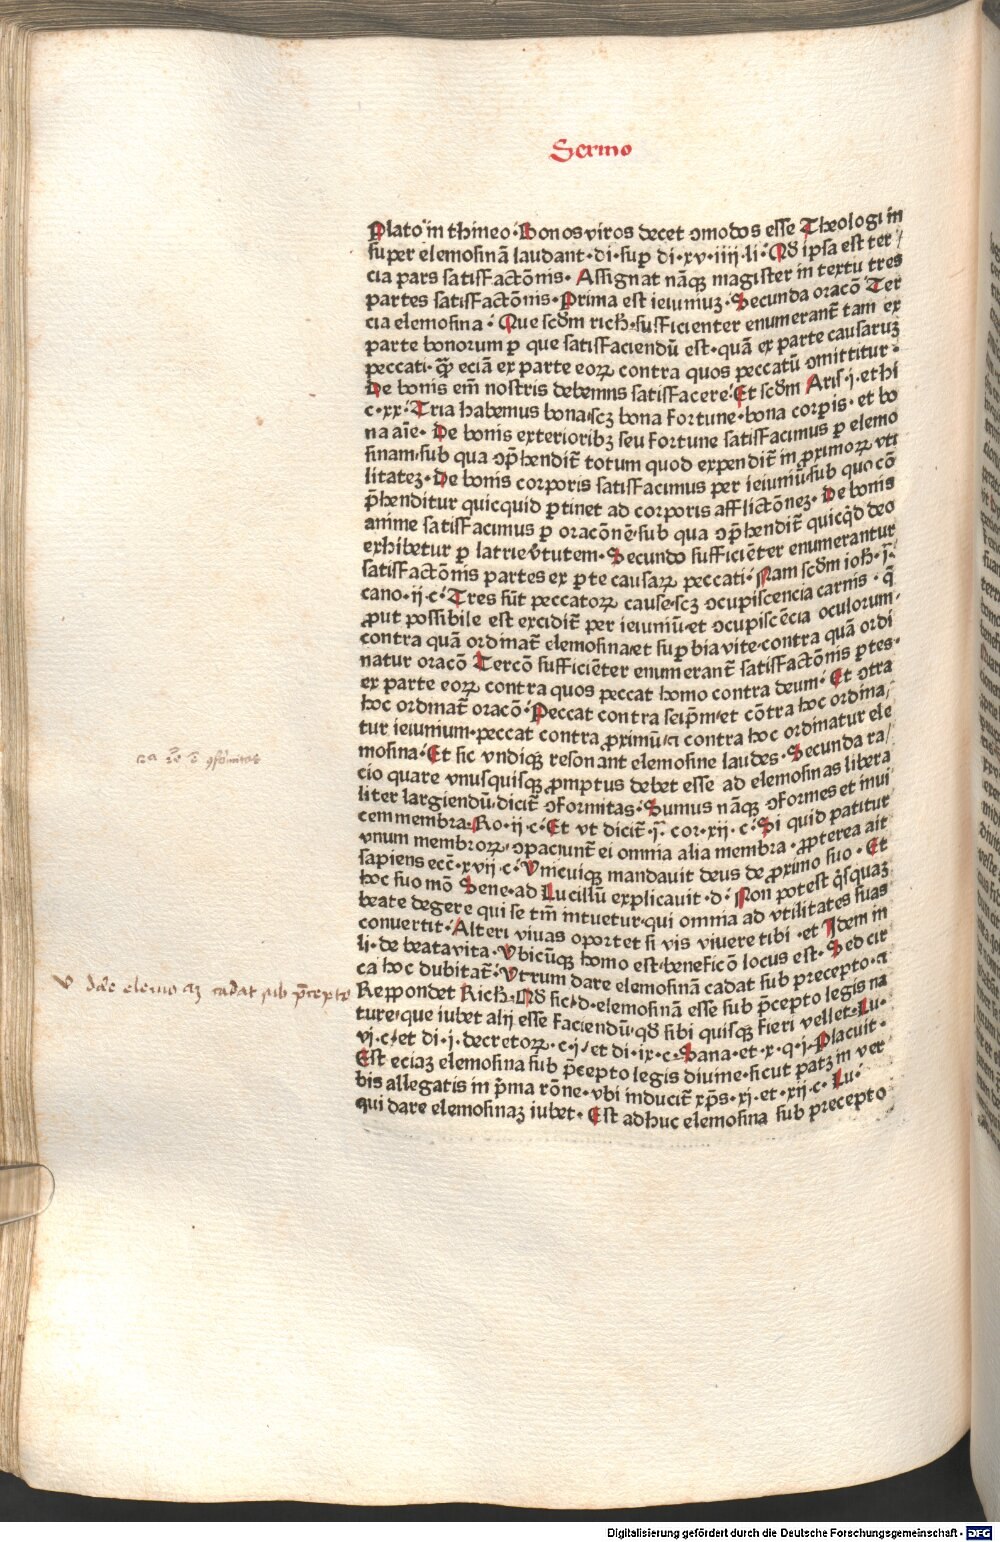 Sermo
Plato in thimeo· Bonos viros decet ɔmodos esse Theologi in
super elemosinā laudant· di· sup̄ di· xv· iiii· li· Qd̄ ipsa est ter/
cia pars satisfactōnis· Assignat nāqꝫ magister in textu tres
partes satisfactōnis· Prima est ieiuniuꝫ· Secunda oracō Ter
cia elemosina· Que scd̄m rich· sufficienter enumerant̄ tam ex
parte bonorum ꝑ que satisfaciendū est· quā ex parte causaruꝫ
peccati· qꝫ eciā ex parte eoꝝ contra quos peccatū ɔmittitur·
De bonis em̄ nostris debemus satisfacere· Et scd̄m Aris· i· ethi
c· xx· Tria habemus bona· scꝫ bona fortune· bona corꝑis· et bo
na aīe· De bonis exterioribꝫ seu fortune satisfacimus ꝑ elemo
sinam· sub qua ɔp̄hendit̄ totum quod expendit̄ in ꝓximoꝝ vti
litateꝫ· De bonis corporis satisfacimus per ieiuniū· sub quo cō
p̄henditur quicquid ꝑtinet ad corporis afflictōneꝫ· De bonis
anime satisfacimus ꝑ oracōnē· sub qua ɔp̄hendit̄ quicq̄d deo
exhibetur ꝑ latrie v̄tutem· Secundo sufficiēter enumerantur
satisfactōnis partes ex ꝑte causaꝝ peccati· Nam scd̄m ioh̄· i·
cano· ii· c· Tres sūt peccatoꝝ cause· scꝫ ɔcupiscencia carnis· q̄
ꝓut possibile est excidit̄ per ieiuniū· et ɔcupiscēcia oculorum·
contra quā ordinat̄ elemosina· et suꝑbia vite· contra quā ordi
natur oracō Tercō sufficiēter enumerant̄ satisfactōnis ꝑtes
ex parte eoꝝ contra quos peccat homo contra deum· Et ɔtra
hoc ordinat̄ oracō· Peccat contra seip̄m· et cōtra hoc ordina/
tur ieiunium· peccat contra ꝓximū· ⁊ contra hoc ordinatur ele
mosina· Et sic vndiqꝫ resonant elemosine laudes· Secunda ra/
cio quare vnusquisqꝫ ꝓmptus debet esse ad elemosinas libera
liter largiendū· dicit̄ ɔformitas· Sumus nāqꝫ ɔformes et inui
cem membra· Ro· ii· c· Et vt dicit̄· i· cor· xii· c· Si quid patitur
vnum membroꝝ· ɔpaciunt̄ ei omnia alia membra· ꝓpterea ait
sapiens ecc̄· xvii· c· Vnicuiqꝫ mandauit deus de ꝓximo suo· Et
hoc suo mō Sene· ad Lucillū explicauit· d· Non potest q̄squaꝫ
beate degere qui se tm̄ intuetur· qui omnia ad vtilitates suas
conuertit· Alteri viuas oportet si vis viuere tibi· et Idem in
li· de beata vita· Vbicūqꝫ homo est· beneficō locus est· Sed cir
ca hoc dubitat̄· Vtrum dare elemosinā cadat sub precepto· ⁊
Respondet Rich· Qd̄ sic· d· elemosinā esse sub p̄cepto legis na
ture· que iubet alij esse faciendū· qd̄ sibi quisqꝫ fieri vellet· Lu·
vi· c· et di· i· decretoꝝ· c· i· et di· ix· c· Sana· et· x· q· i· Placuit·
Est eciaꝫ elemosina sub p̄cepto legis diuine· sicut patꝫ in ver
bis allegatis in p̄ma rōne· vbi inducit̄ xp̄s· xi· et· xii· c· Lu·
qui dare elemosinaꝫ iubet· Est adhuc elemosina sub precepto
ra 2a ē ɔformitas
V dare elemosinaꝫ cadat sub p̄cepto
Digitalisierung gefördert durch die Deutsche Forschungsgemeinschaft - DFG